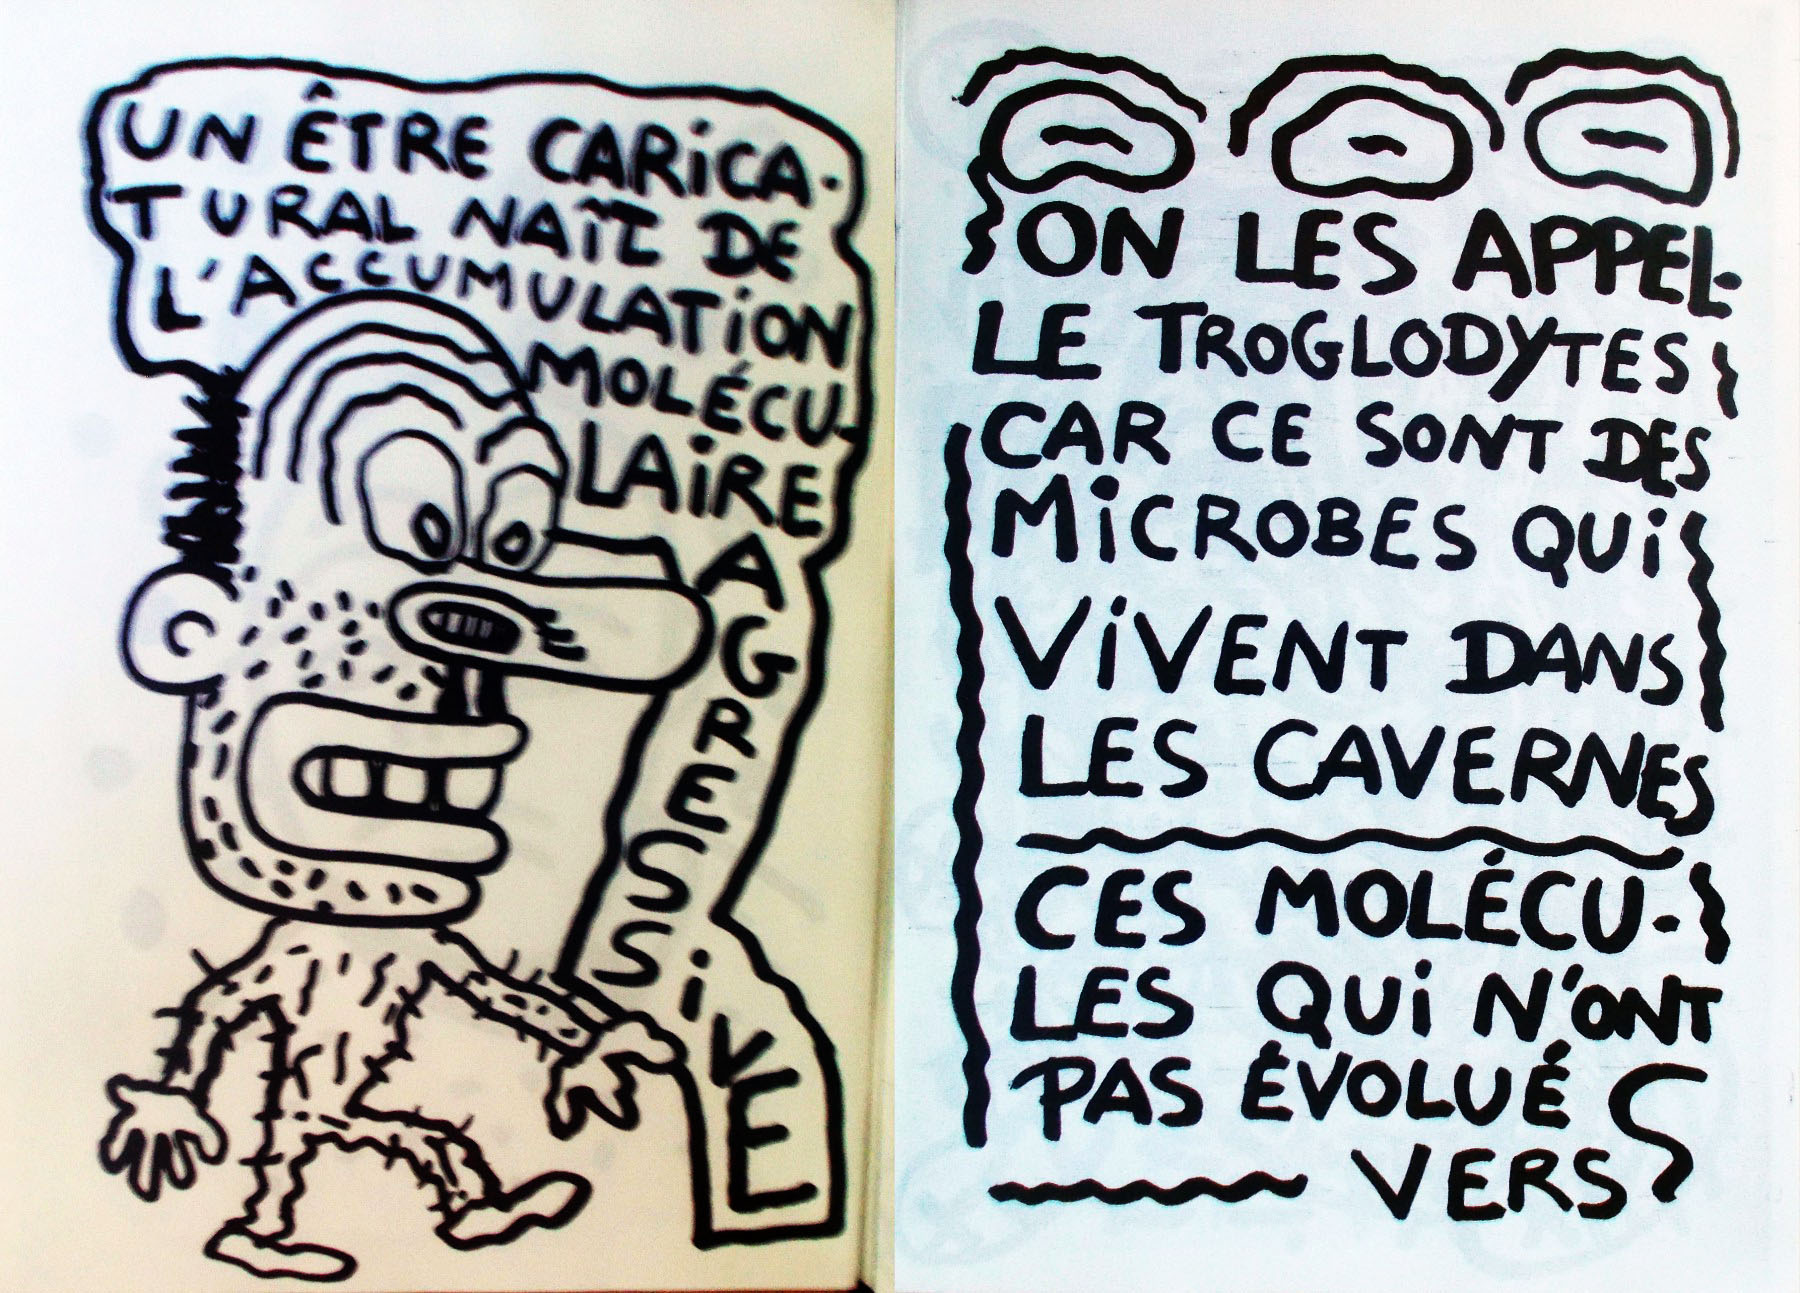 UN ÊTRE CARICA-
TURAL NAÎT DE
L'ACCUMULATION
MOLÉCU-
LAIRE
AGRESSIVE
ON LES APPEL-
LE TROGLODYTES
CAR CE SONT DES
MICROBES QUI
VIVENT DANS
LES CAVERNES
CES MOLÉCU-
LES QUI N'ONT
PAS ÉVOLUÉ
VERS